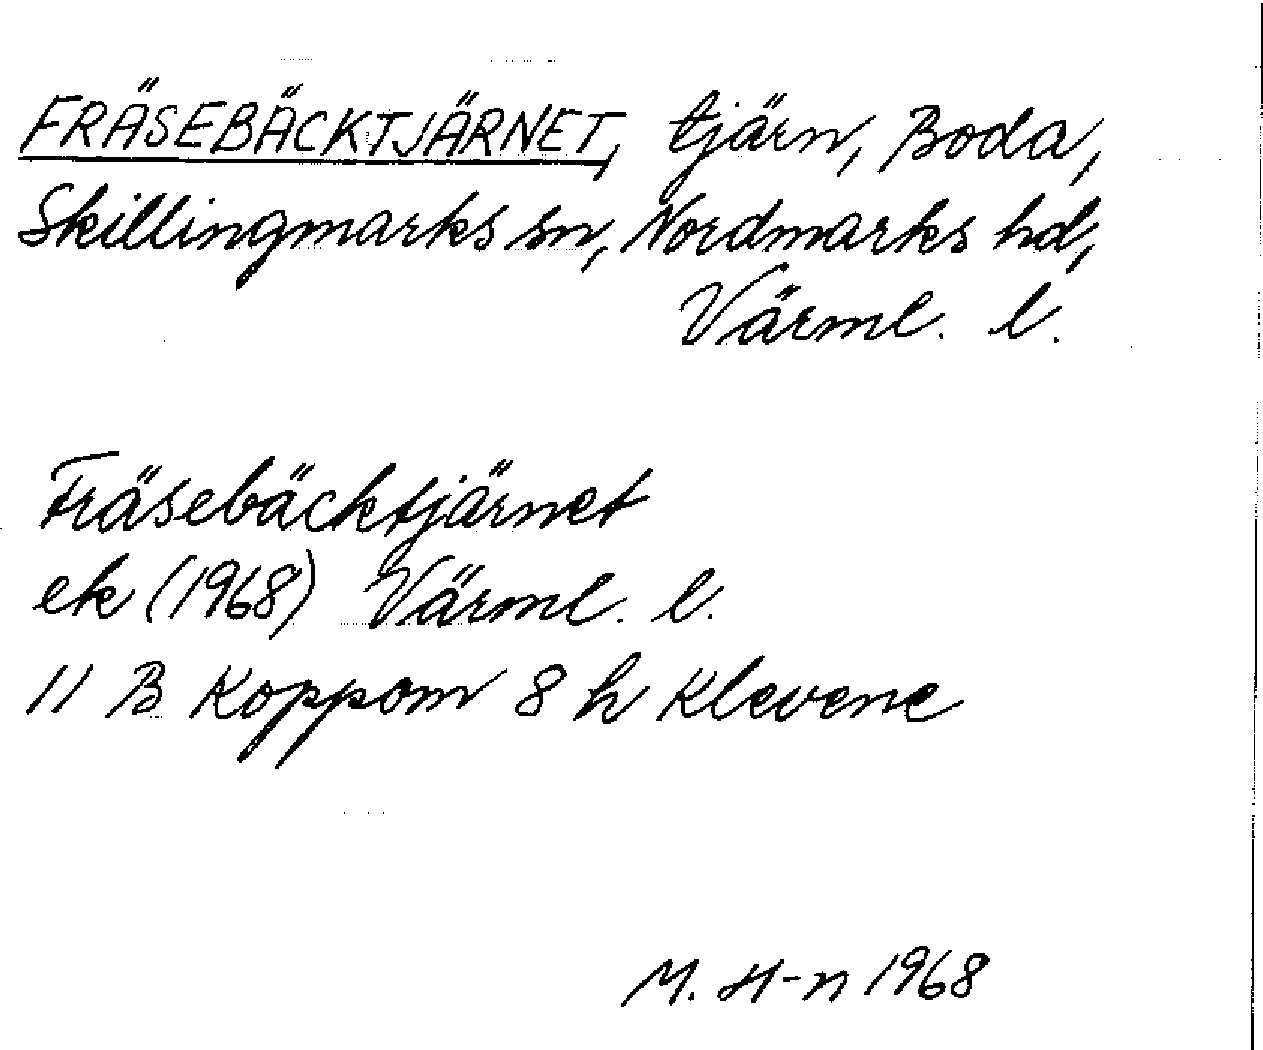 FRÄSEBÄCKTJÄRNET, tjärn, Boda,
Skillingmarks sn, Nordmarks hd,
Värml. l.
Fräsebäcktjärnet
ek (1968) Värml. l.
11 B Koppom 8 h Klevene
M. H-n 1968